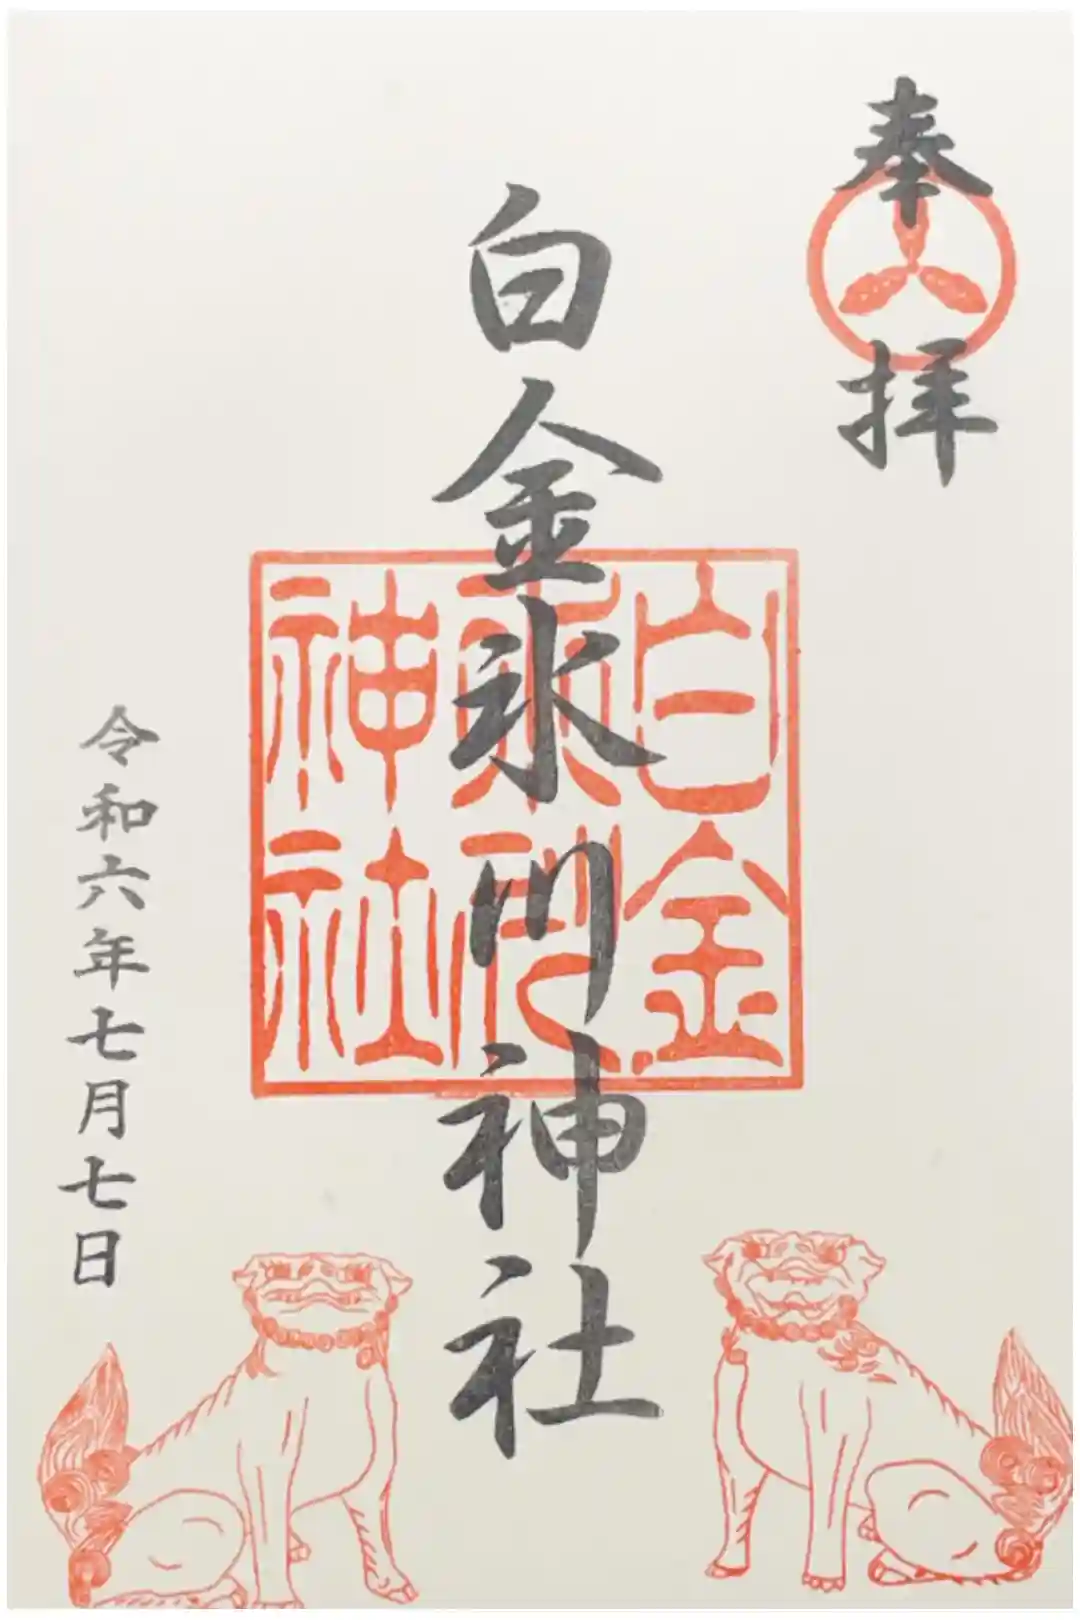 奉拝
白金氷川神社
白金
神社
令和六年七月七日